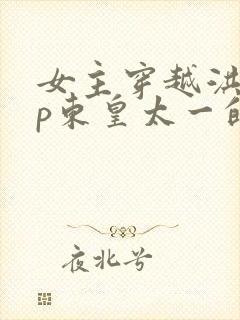 女主穿越洪
p东皇太一的
夜北兮